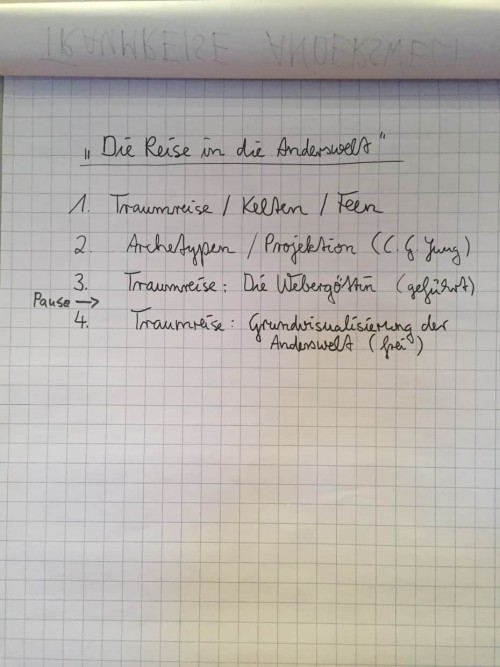 TRAUMREISE ANDERSWELT
„Die Reise in die Anderswelt“
1. Traumreise / Kelten / Feen
2. Archetypen / Projektion (C. G. Jung)
3. Traumreise: Die Webergöttin (geführt)
Pause →
4. Traumreise: Grundvisualisierung der
Anderswelt (frei)